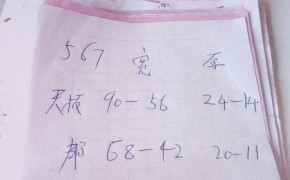 567 宽 厚
天板 90-56 24-14
邦 68-42 20-11